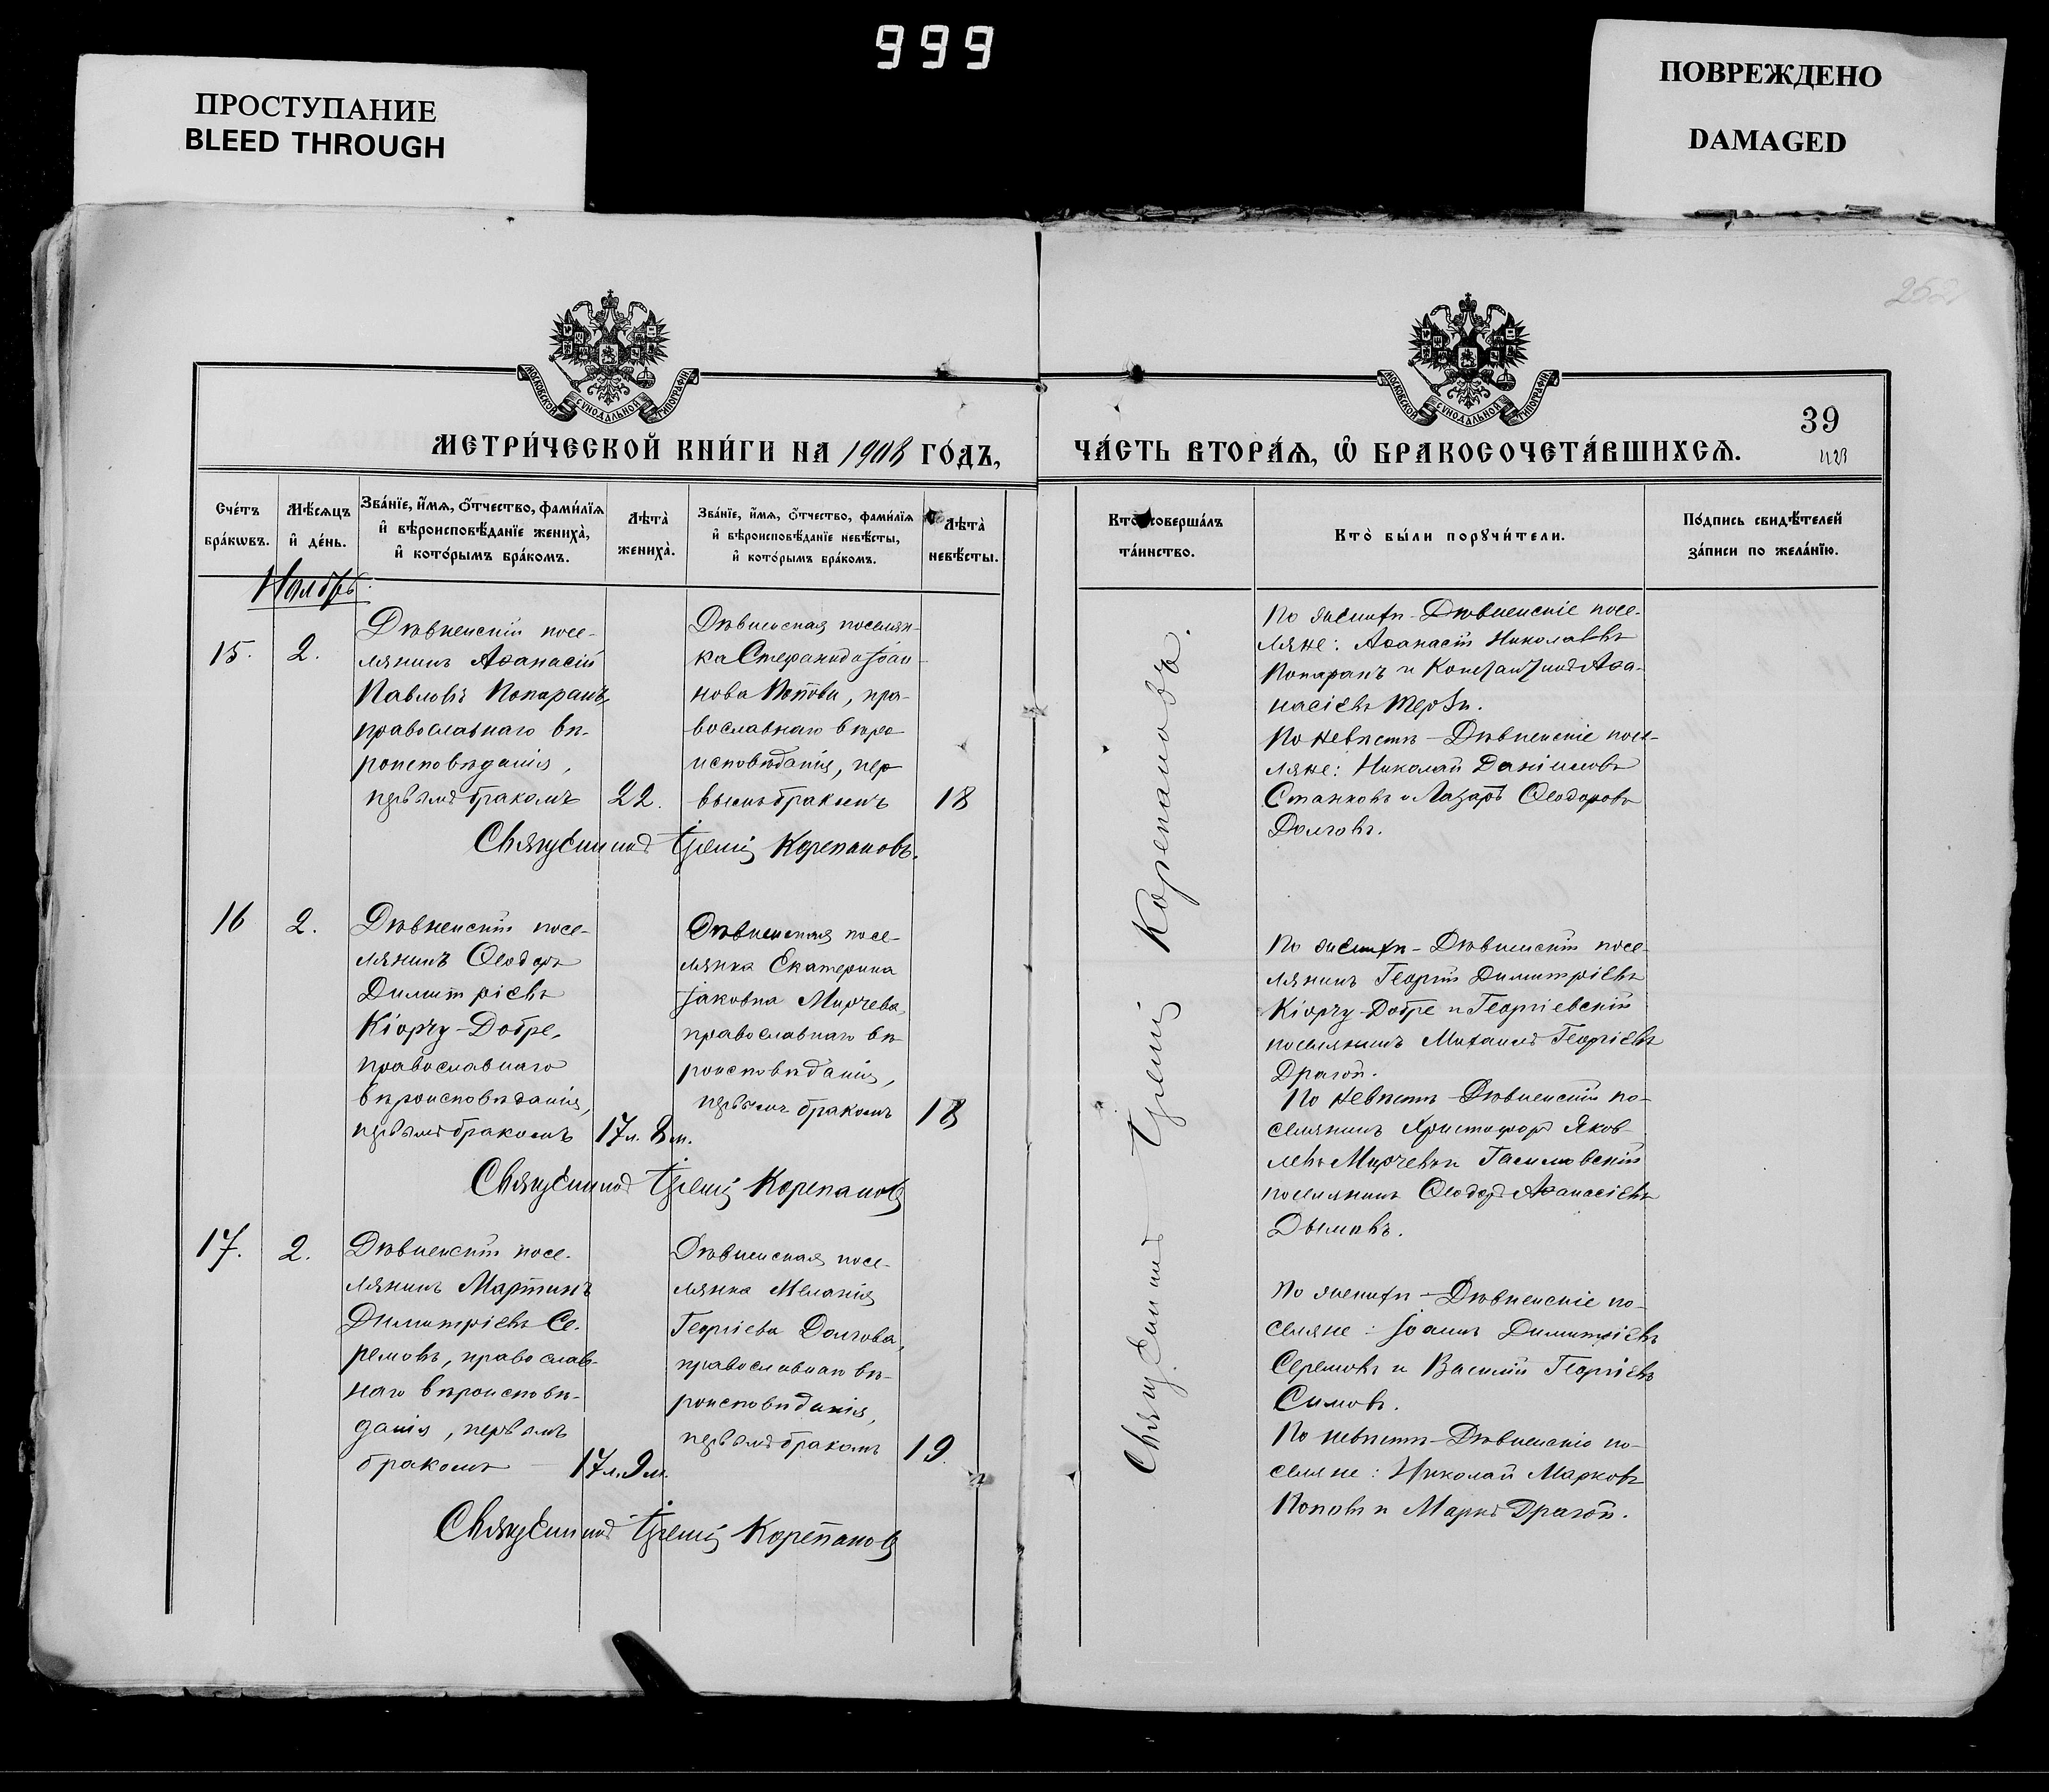 999
ПРОСТУПАНИЕ
BLEED THROUGH
ПОВРЕЖДЕНО
DAMAGED
МОСКОВСКОЙ СѴНОДАЛЬНОЙ ТИПОГРАФІИ
МЕТРИ́ЧЕСКОЙ КНИ́ГИ НА 1908 ГО́ДЪ,
Сче́тъ
бра́кѡвъ.
Мѣ́сѧцъ
и҆ де́нь.
Зва́нїе, и҆́мѧ, ѻ҆́тчество, фами́лїѧ
и҆ вѣроисповѣ́данїе жениха̀,
и҆ кото́рымъ бра́комъ.
Лѣта̀
жениха̀.
Зва́нїе, и҆́мѧ, ѻ҆́тчество, фами́лїѧ
и҆ вѣроисповѣ́данїе невѣ́сты,
и҆ кото́рымъ бра́комъ.
Лѣта̀
невѣ́сты.
Ноябрь.
15.
2.
Дѣвненскій посе-
лянинъ Аѳанасій
Павловъ Попаранъ,
православнаго вѣ-
роисповѣданія,
первымъ бракомъ
22.
Дѣвненская поселян-
ка Стефанида Іоан-
нова Попова, пра-
вославнаго вѣро
исповѣданія, пер
вымъ бракомъ
18
Священникъ Корепановъ.
16
2.
Дѣвненскій посе-
лянинъ Ѳеодоръ
Димитріевъ
Кіорчу-Добре,
православнаго
вѣроисповѣданія,
первымъ бракомъ
17 л. 8 м.
Дѣвненская посе-
лянка Екатерина
Іаковна Мирчева,
православнаго вѣ
роисповѣданія,
первымъ бракомъ
18
Священникъ Корепановъ
17.
2.
Дѣвненскій посе-
лянинъ Мартинъ
Димитріевъ Се-
ремовъ, православ-
наго вѣроисповѣ-
данія, первымъ
бракомъ
17 л. 9 м.
Дѣвненская посе-
лянка Меланія
Георгіева Долгова,
православнаго вѣ-
роисповѣданія,
первымъ бракомъ
19.
Священникъ Корепановъ
МОСКОВСКОЙ СѴНОДАЛЬНОЙ ТИПОГРАФІИ
39
ЧА́СТЬ ВТОРА́Ѧ, Ѡ҆ БРАКОСОЧЕТА́ВШИХСѦ.
Кто̀ соверша́лъ
та́инство.
Кто̀ бы́ли порꙋчи́тели.
По́дпись свидѣ́телей
за́писи по жела́нїю.
Священникъ Корепановъ.
По женихѣ - Дѣвненскіе посе-
ляне: Аѳанасій Николаевъ
Попаранъ и Константинъ Аѳа-
насіевъ Терзи.
По невѣстѣ - Дѣвненскіе посе-
ляне: Николай Даніиловъ
Станковъ и Лазарь Ѳеодоровъ
Долговъ.
По женихѣ - Дѣвненскій посе-
лянинъ Георгій Димитріевъ
Кіорчу-Добре и Георгіевскій
поселянинъ Михаилъ Георгіевъ
Драгой.
По невѣстѣ - Дѣвненскій по-
селянинъ Христофоръ Яков-
левъ Мирчевъ и
поселянинъ Ѳеодоръ Аѳанасіевъ
Дымовъ.
По женихѣ - Дѣвненскіе по-
селяне: Іоаннъ Димитріевъ
Серемовъ и Василій Георгіевъ
Симовъ.
По невѣстѣ - Дѣвненскіе по-
селяне: Николай Марковъ
Поповъ и Маркъ Драгой.